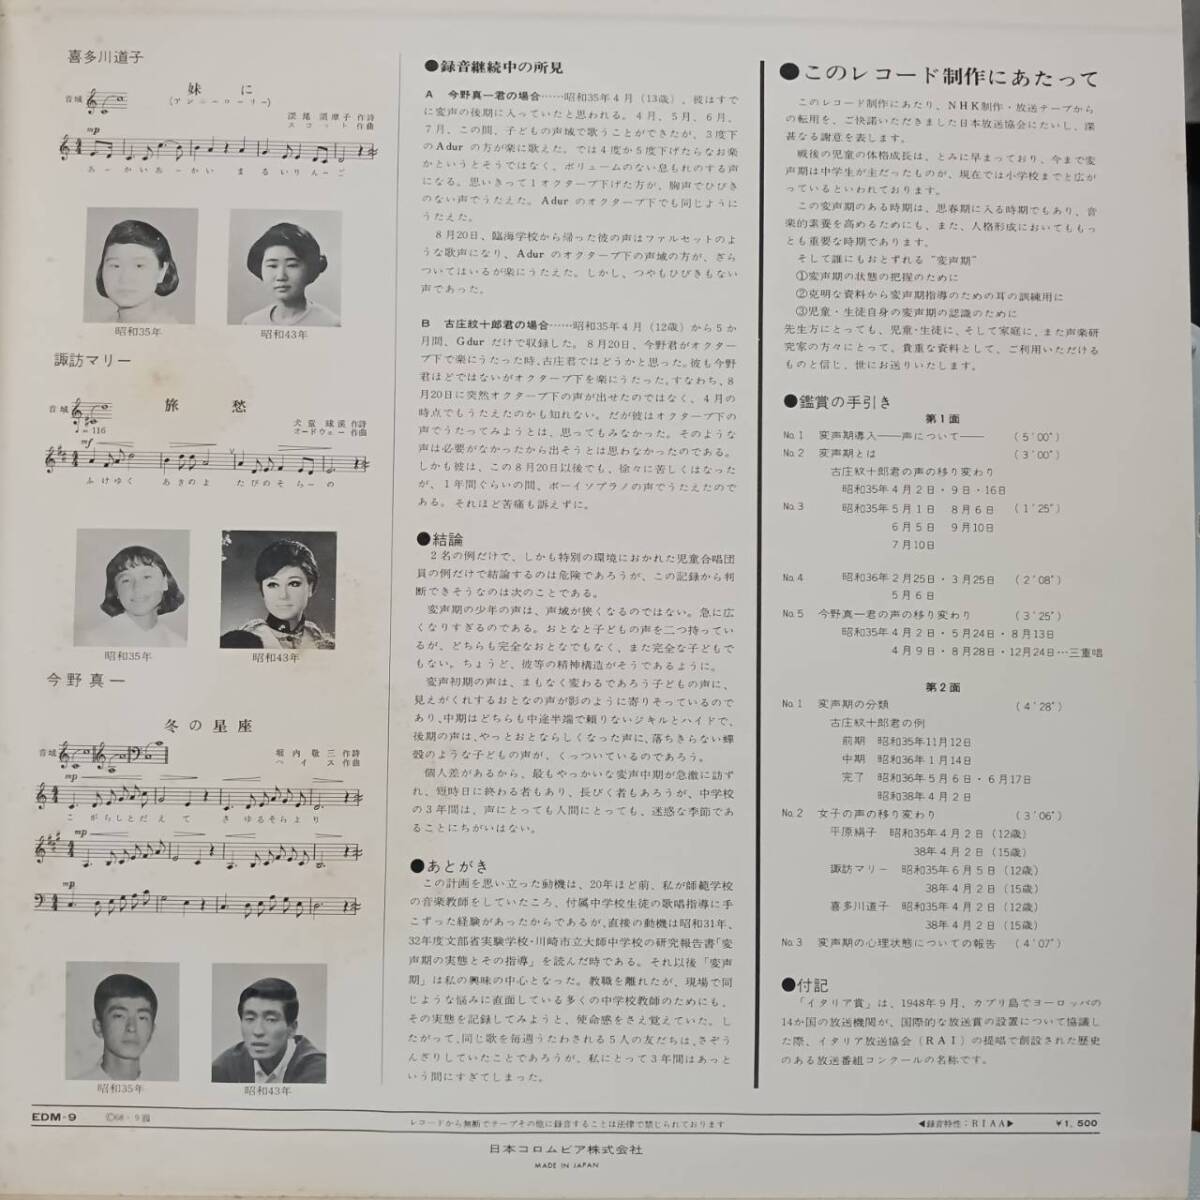 喜多川道子
妹に
(アンニーローリー)
音域
深尾須磨子 作詩
スコット 作曲
mp
あーかいあーかい まるいりんーご
昭和35年
昭和43年
諏訪マリー
旅愁
音域
♩=116
犬童球溪 作詩
オードウェー 作曲
mf
ふけゆく あきのよ たびのそらーの
昭和35年
昭和43年
今野真一
冬の星座
音域
堀内敬三 作詩
ヘイス 作曲
mp
こがらしとだえて さゆるそらより
mp
mp
昭和35年
昭和43年
●録音継続中の所見
A 今野真一君の場合……昭和35年4月(13歳)、彼はすで
に変声の後期に入っていたと思われる。4月、5月、6月、
7月、この間、子どもの声域で歌うことができたが、3度下
のAdurの方が楽に歌えた。では4度か5度下げたらなお楽
かというとそうではなく、ボリュームのない息もれのする声
になる。思いきって1オクターブ下げた方が、胸声でひびき
のない声でうたえた。Adurのオクターブ下でも同じように
うたえた。
8月20日、臨海学校から帰った彼の声はファルセットのよ
うな歌声になり、Adurのオクターブ下の声域の方が、ざら
ついてはいるが楽にうたえた。しかし、つやもひびきもない
声であった。
B 古庄紋十郎君の場合……昭和35年4月(12歳)から5か
月間、Gdurだけで収録した。8月20日、今野君がオクター
ブ下で楽にうたった時、古庄君ではどうかと思った。彼も今野
君ほどではないがオクターブ下を楽にうたった。すなわち、8
月20日に突然オクターブ下の声が出せたのではなく、4月の
時点でもうたえたのかも知れない。だが彼はオクターブ下の
声でうたってみようとは、思ってもみなかった。そのような
声は必要がなかったから出そうとは思わなかったのである。
しかも彼は、この8月20日以後でも、徐々に苦しくはなった
が、1年間ぐらいの間、ボーイソプラノの声でうたえたので
ある。それほど苦痛も訴えずに。
●結論
2名の例だけで、しかも特別の環境におかれた児童合唱団
員の例だけで結論するのは危険であろうが、この記録から判
断できそうなのは次のことである。
変声期の少年の声は、声域が狭くなるのではない。急に広
くなりすぎるのである。おとなと子どもの声を二つ持ってい
るが、どちらも完全なおとなでもなく、また完全な子どもで
もない。ちょうど、彼等の精神構造がそうであるように。
変声初期の声は、まもなく変わるであろう子どもの声に、
見えがくれするおとなの声が影のように寄りそっているので
あり、中期はどちらも中途半端で頼りないジキルとハイドで、
後期の声は、やっとおとならしくなった声に、落ちきらない蟬
殻のような子どもの声が、くっついているのであろう。
個人差があるから、最もやっかいな変声中期が急激に訪ず
れ、短時日に終わる者もあり、長びく者もあろうが、中学校
の3年間は、声にとっても人間にとっても、迷惑な季節であ
ることにちがいはない。
●あとがき
この計画を思い立った動機は、20年ほど前、私が師範学校
の音楽教師をしていたころ、付属中学校生徒の歌唱指導に手
こずった経験があったからであるが、直接の動機は昭和31年、
32年度文部省実験学校・川崎市立大師中学校の研究報告書「変
声期の実態とその指導」を読んだ時である。それ以後「変声
期」は私の興味の中心となった。教職を離れたが、現場で同
じような悩みに直面している多くの中学校教師のためにも、
その実態を記録してみようと、使命感をさえ覚えていた。し
たがって、同じ歌を毎週うたわされる5人の友だちは、さぞう
んざりしていたことであろうが、私にとって3年間はあっと
いう間にすぎてしまった。
●このレコード制作にあたって
このレコード制作にあたり、NHK制作・放送テープから
の転用を、ご快諾いただきました日本放送協会にたいし、深
甚なる謝意を表します。
戦後の児童の体格成長は、とみに早まっており、今まで変
声期は中学生が主だったものが、現在では小学校までと広が
っているといわれております。
この変声期のある時期は、思春期に入る時期でもあり、音
楽的素養を高めるためにも、また、人格形成においてももっ
とも重要な時期であります。
そして誰にもおとずれる“変声期”
①変声期の状態の把握のために
②克明な資料から変声期指導のための耳の訓練用に
③児童・生徒自身の変声期の認識のために
先生方にとっても、児童・生徒に、そして家庭に、また声楽研
究家の方々にとって、貴重な資料として、ご利用いただける
ものと信じ、世にお送りいたします。
●鑑賞の手引き
第1面
No.1 変声期導入――声について―― (5′00″)
No.2 変声期とは (3′00″)
古庄紋十郎君の声の移り変わり
昭和35年4月2日・9日・16日
No.3 昭和35年5月1日 8月6日 (1′25″)
6月5日 9月10日
7月10日
No.4 昭和36年2月25日・3月25日 (2′08″)
5月6日
No.5 今野真一君の声の移り変わり (3′25″)
昭和35年4月2日・5月24日・8月13日
4月9日・8月28日・12月24日…三重唱
第2面
No.1 変声期の分類 (4′28″)
古庄紋十郎君の例
前期 昭和35年11月12日
中期 昭和36年1月14日
完了 昭和36年5月6日・6月17日
昭和38年4月2日
No.2 女子の声の移り変わり (3′06″)
平原絹子 昭和35年4月2日(12歳)
38年4月2日(15歳)
諏訪マリー 昭和35年6月5日(12歳)
38年4月2日(15歳)
喜多川道子 昭和35年4月2日(12歳)
38年4月2日(15歳)
No.3 変声期の心理状態についての報告 (4′07″)
●付記
「イタリア賞」は、1948年9月、カプリ島でヨーロッパの
14か国の放送機関が、国際的な放送賞の設置について協議し
た際、イタリア放送協会(RAI)の提唱で創設された歴史
のある放送番組コンクールの名称です。
EDM-9 Ⓒ68・9
レコードから無断でテープその他に録音することは法律で禁じられております
◀録音特性：RIAA▶ ¥1,500
日本コロムビア株式会社
MADE IN JAPAN